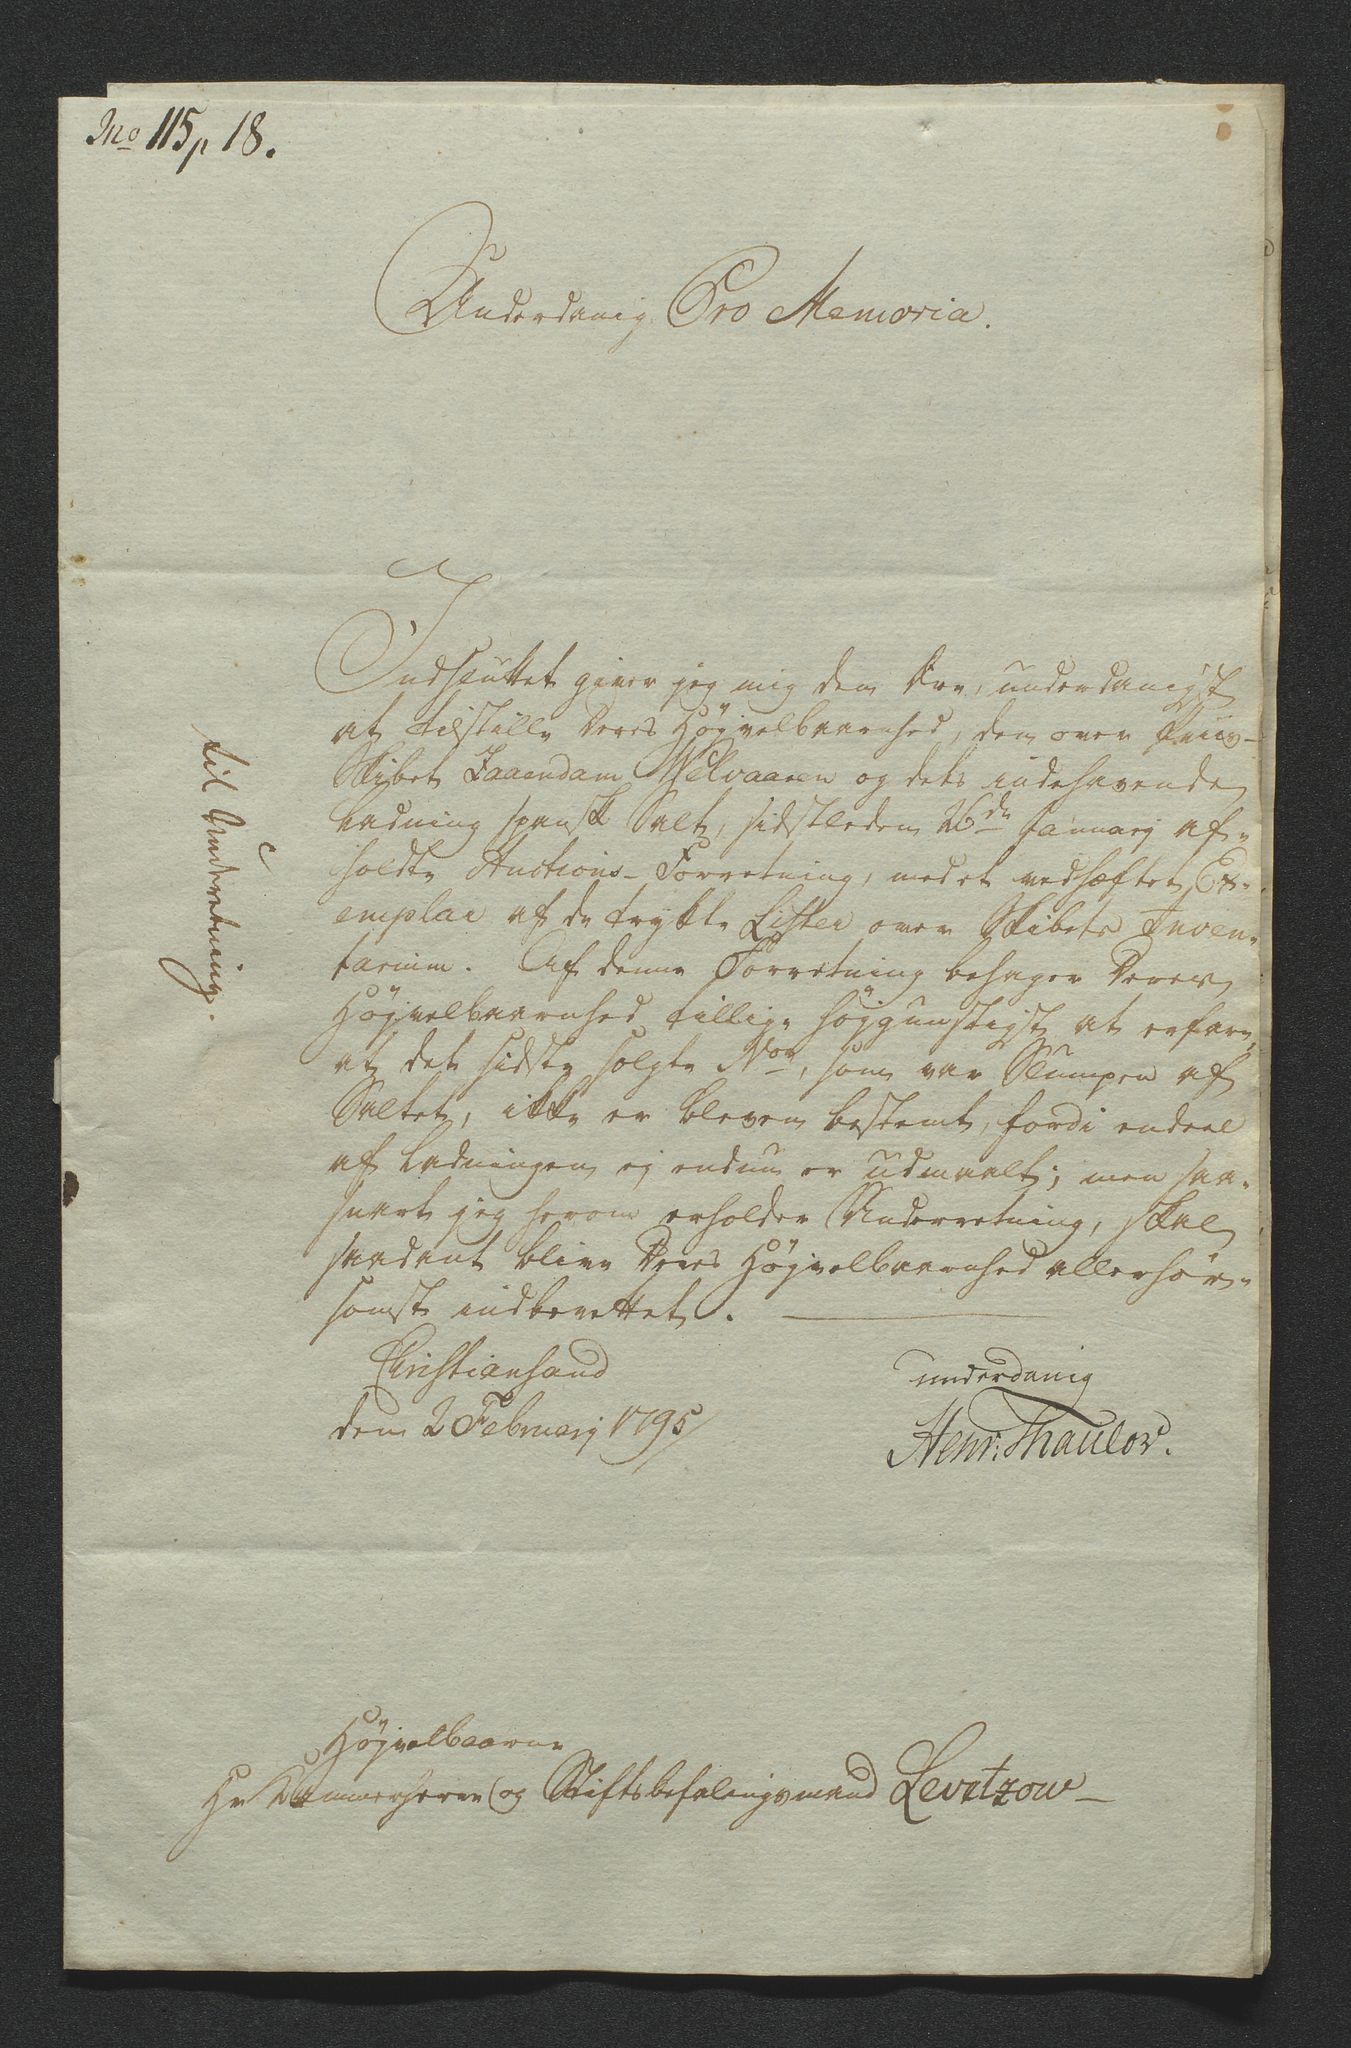 No 115 p 18.
Underdanig Pro Memoria.
Indsluttet giver jeg mig den Ære, underdanigst
at tilstille Deres Højvelbaarnhed, den over Priis-
Skibet Zaaendam Welvaaren og dets indehavende
Ladning spansk Salt, sidstleden 26de Januarj af-
holdte Auctions-Forretning, med et vedhæftet Ex-
emplar af de trykte Lister over Skibets Inven-
tarium. Af denne Forretning behager Deres
Højvelbaarnhed tillige højgunstigst at erfare,
at det sidste solgte Nor, som var Slumpen af
Saltet, ikke er bleven bestemt, fordi endeel
af Ladningen ej endnu er udmaalt; men saa-
snart jeg herom erholder Underretning, skal
saadant blive Deres Højvelbaarnhed allerhør-
somst indberettet.
Christiansand
den 2 Februarj 1795
underdanig
Henr: Thaulow.
til Underretning.
Højvelbaarne
Hr Kammerherre og Stiftsbefalingsmand Levetzow